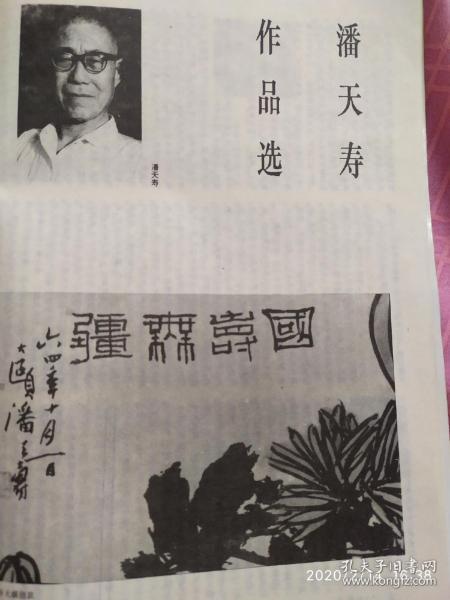 潘天寿
作品选
潘天寿
國壽無疆
六四年十月一日
大頤潘天壽
孔夫子旧书网
2020/2/14 16:38
kongfz.com